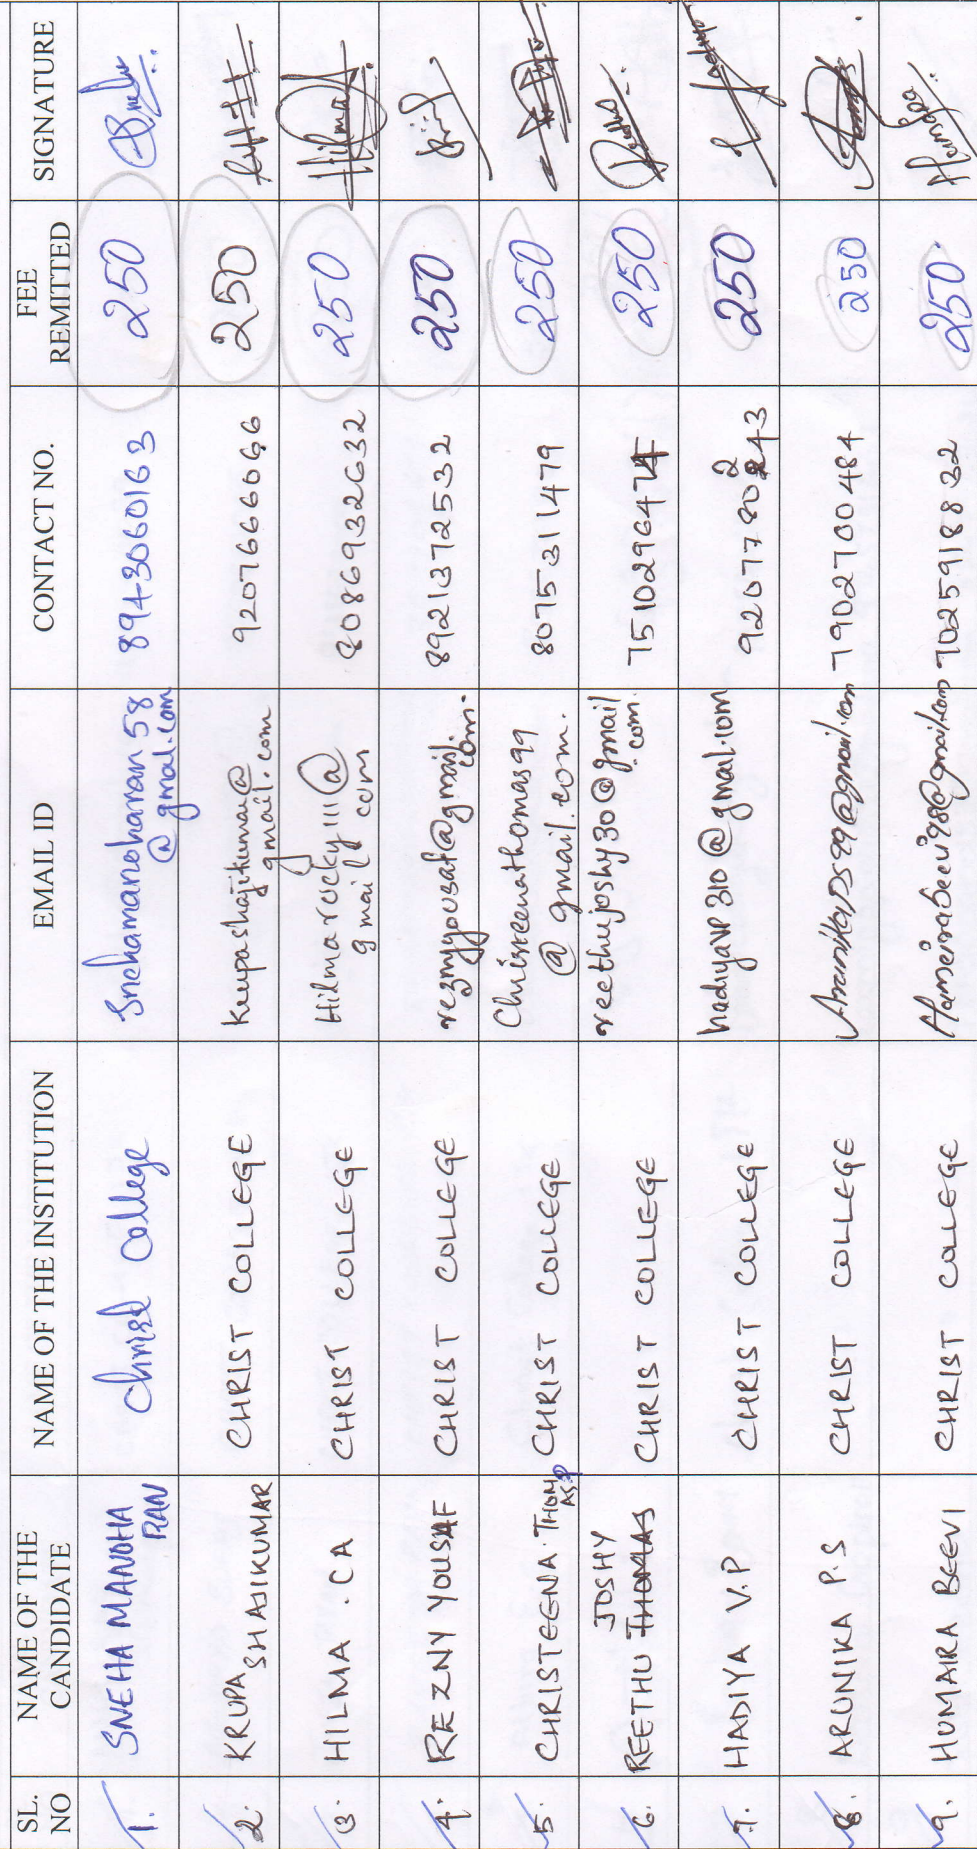 SL. NO NAME OF THE CANDIDATE NAME OF THE INSTITUTION EMAIL ID CONTACT NO. FEE REMITTED SIGNATURE
1. SNEHA MANOHA RAN Christ College Snehamanoharan58 @gmal.com 8943060163 250
2. KRUPA SHAJIKUMAR CHRIST COLLEGE krupashajikumar@ gmail.com 9207666066 250
3. HILMA . CA CHRIST COLLEGE Hilmarocky111@ gmail com 8086932632 250 Hilma
4. REZNY YOUSAF CHRIST COLLEGE reznyyousaf@gmail. com. 8921372532 250
5. CHRISTEENA THOM AS.P CHRIST COLLEGE Christeenathomas99 @ gmail.com. 8075311479 250
6. REETHU JOSHY CHRIST COLLEGE reethujoshy30@gmail com. 7510296474 250
7. HADIYA V.P CHRIST COLLEGE hadiyavp310@gmail.com 9207780243 250
8. ARUNIKA P.S CHRIST COLLEGE ArunikaPS99@gmail.com 7902700484 250
9. HUMAIRA BEEVI CHRIST COLLEGE Humairabeevi98@gmail.com 7025918832 250. Humaira